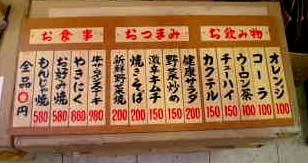 お食事 おつまみ お飲み物
オレンジ 100
コーラ 100
ウーロン茶 100
チューハイ 150
カクテル 150
健康サラダ 200
野菜炒め 200
激辛キムチ 150
焼きそば 200
新鮮野菜焼 200
牛タンステーキ 980
やきにく 880
お好み焼 580
もんじゃ焼 580
全品 円